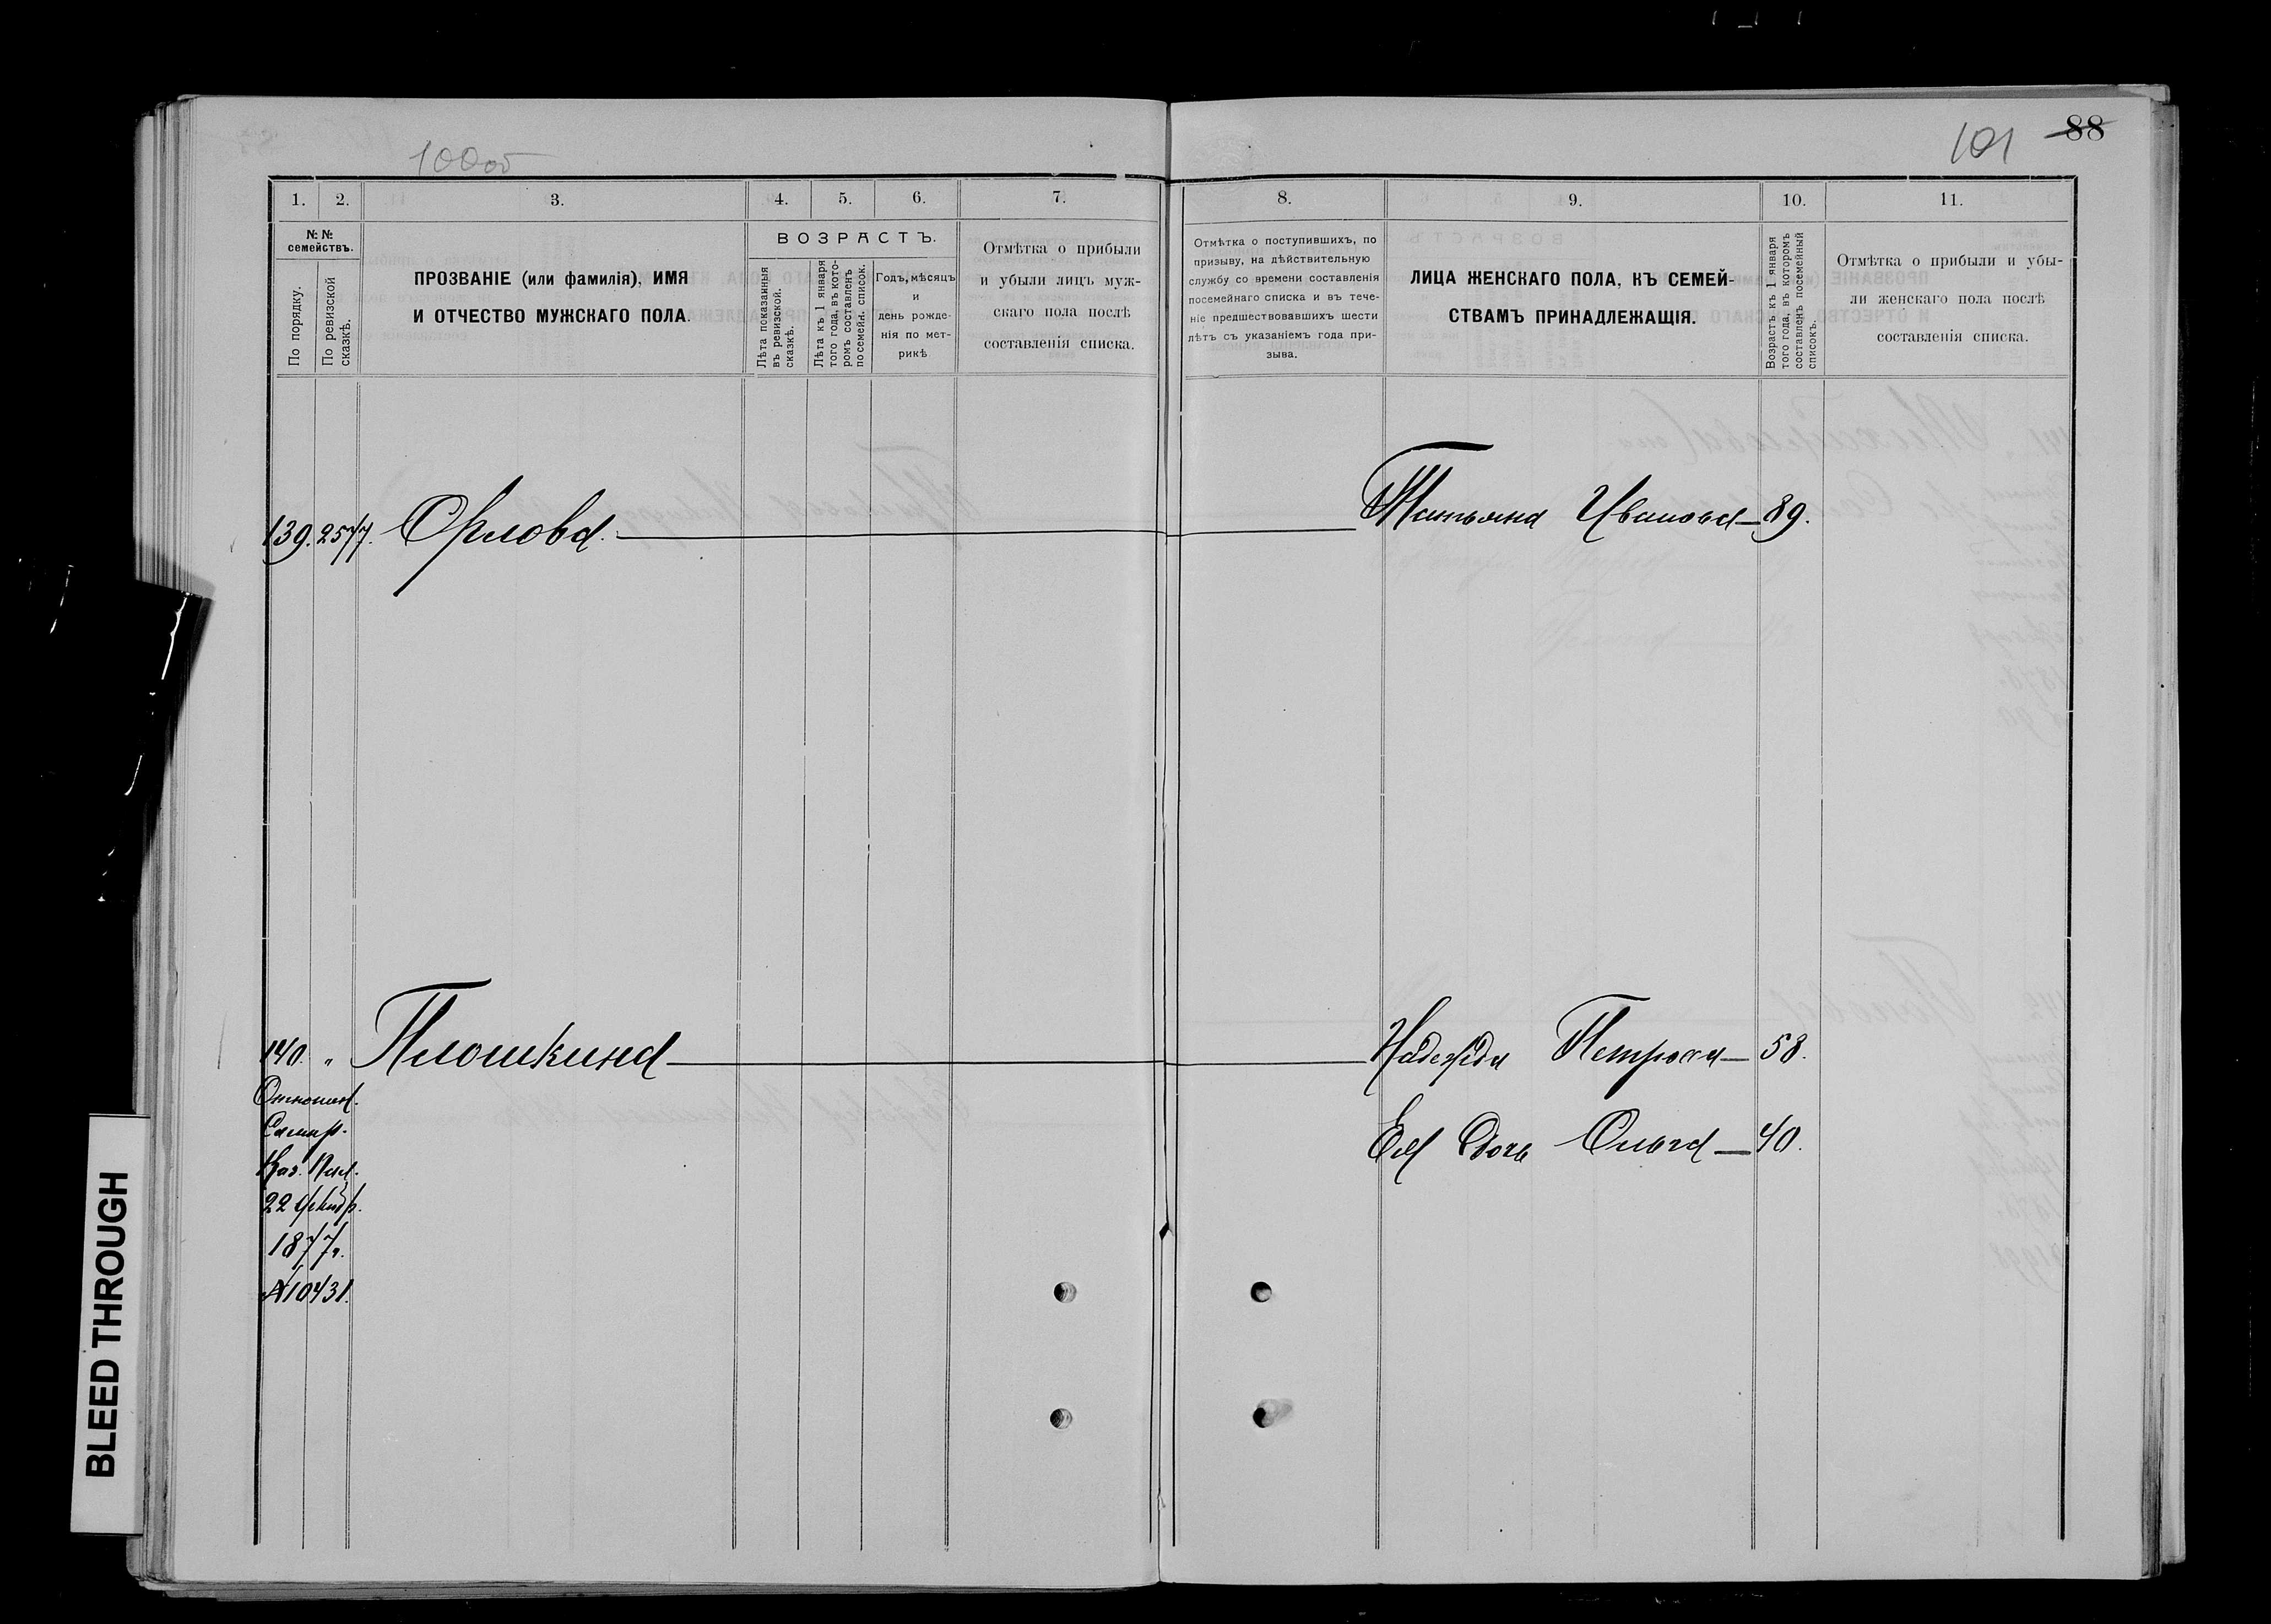 100 об
101 88
1. 2. 3. 4. 5. 6. 7. 8. 9. 10. 11.
№ №
семействъ.
По порядку.
По ревизской
сказкѣ.
ПРОЗВАНІЕ (или фамилія), ИМЯ
И ОТЧЕСТВО МУЖСКАГО ПОЛА.
ВОЗРАСТЪ.
Лѣта показанныя
въ ревизской.
сказкѣ.
Лѣта къ 1 января
того года, въ кото-
ромъ составленъ
посемейн. список.
Годъ, мѣсяцъ
и
день рожде-
нія по мет-
рикѣ
Отмѣтка о прибыли
и убыли лицъ муж-
скаго пола послѣ
составленія списка.
Отмѣтка о поступившихъ, по
призыву, на дѣйствительную
службу со времени составленія
посемейнаго списка и въ тече-
ніе предшествовавшихъ шести
лѣтъ съ указаніемъ года при-
зыва.
ЛИЦА ЖЕНСКАГО ПОЛА, КЪ СЕМЕЙ-
СТВАМЪ ПРИНАДЛЕЖАЩІЯ.
Возрастъ къ 1 января
того года, въ которомъ
составленъ посемейный
списокъ.
Отмѣтка о прибыли и убы-
ли женскаго пола послѣ
составленія списка.
139. 2577. Орлова. Татьяна Иванова 89.
140. " Плошкина Надежда Петрова 58.
Отношен.
Самар.
Каз. Пал.
Ея дочь Ольга 40.
22 Декабр.
1877 г.
№ 10431.
BLEED THROUGH